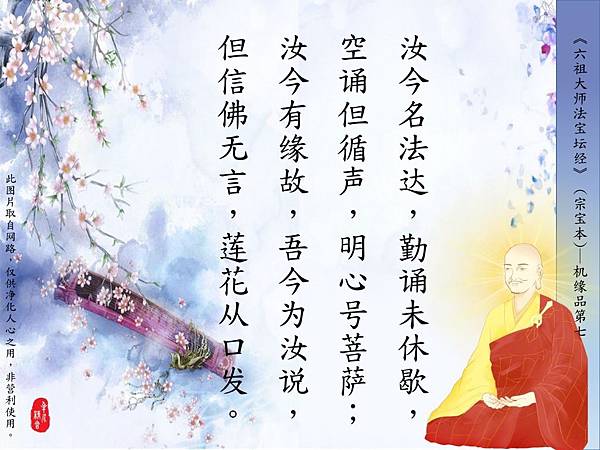 《六祖大师法宝坛经》（宗宝本）—机缘品第七
汝今名法达，勤诵未休歇，
空诵但循声，明心号菩萨；
汝今有缘故，吾今为汝说，
但信佛无言，莲花从口发。
此图片取自网路，仅供净化人心之用，非营利使用。